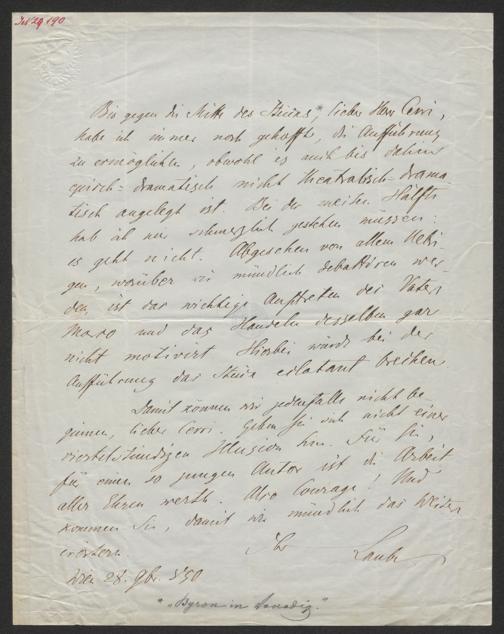 Bis gegen die Mitte des Stückes, lieber Herr Cerri,
habe ich immer noch gehofft, die Aufführung
zu ermöglichen, obwohl es auch bis dahin
episch-dramatisch nicht theatralisch-drama-
tisch angelegt ist. Bei der zweiten Hälfte
hab ich mir schmerzlich gestehen müssen:
es geht nicht. Abgesehen von allem Uebri-
gen, worüber wir mündlich debattiren wer-
den, ist das wichtige Auftreten des Vater
Moro und das Handeln desselben gar
nicht motivirt. Hierbei würde bei der
Aufführung das Stück eclatant brechen
Damit können wir jedenfalls nicht be-
ginnen, lieber Cerri. Geben Sie sich nicht einer
viertelstündigen Illusion hin. Für Sie,
für einen so jungen Autor ist die Arbeit
aller Ehren werth. Also Courage! Und
kommen Sie, damit wir mündlich das Weitere
erörtern.
Ihr Laube
Wien 28. 9br. 850
"Byron in Venedig."